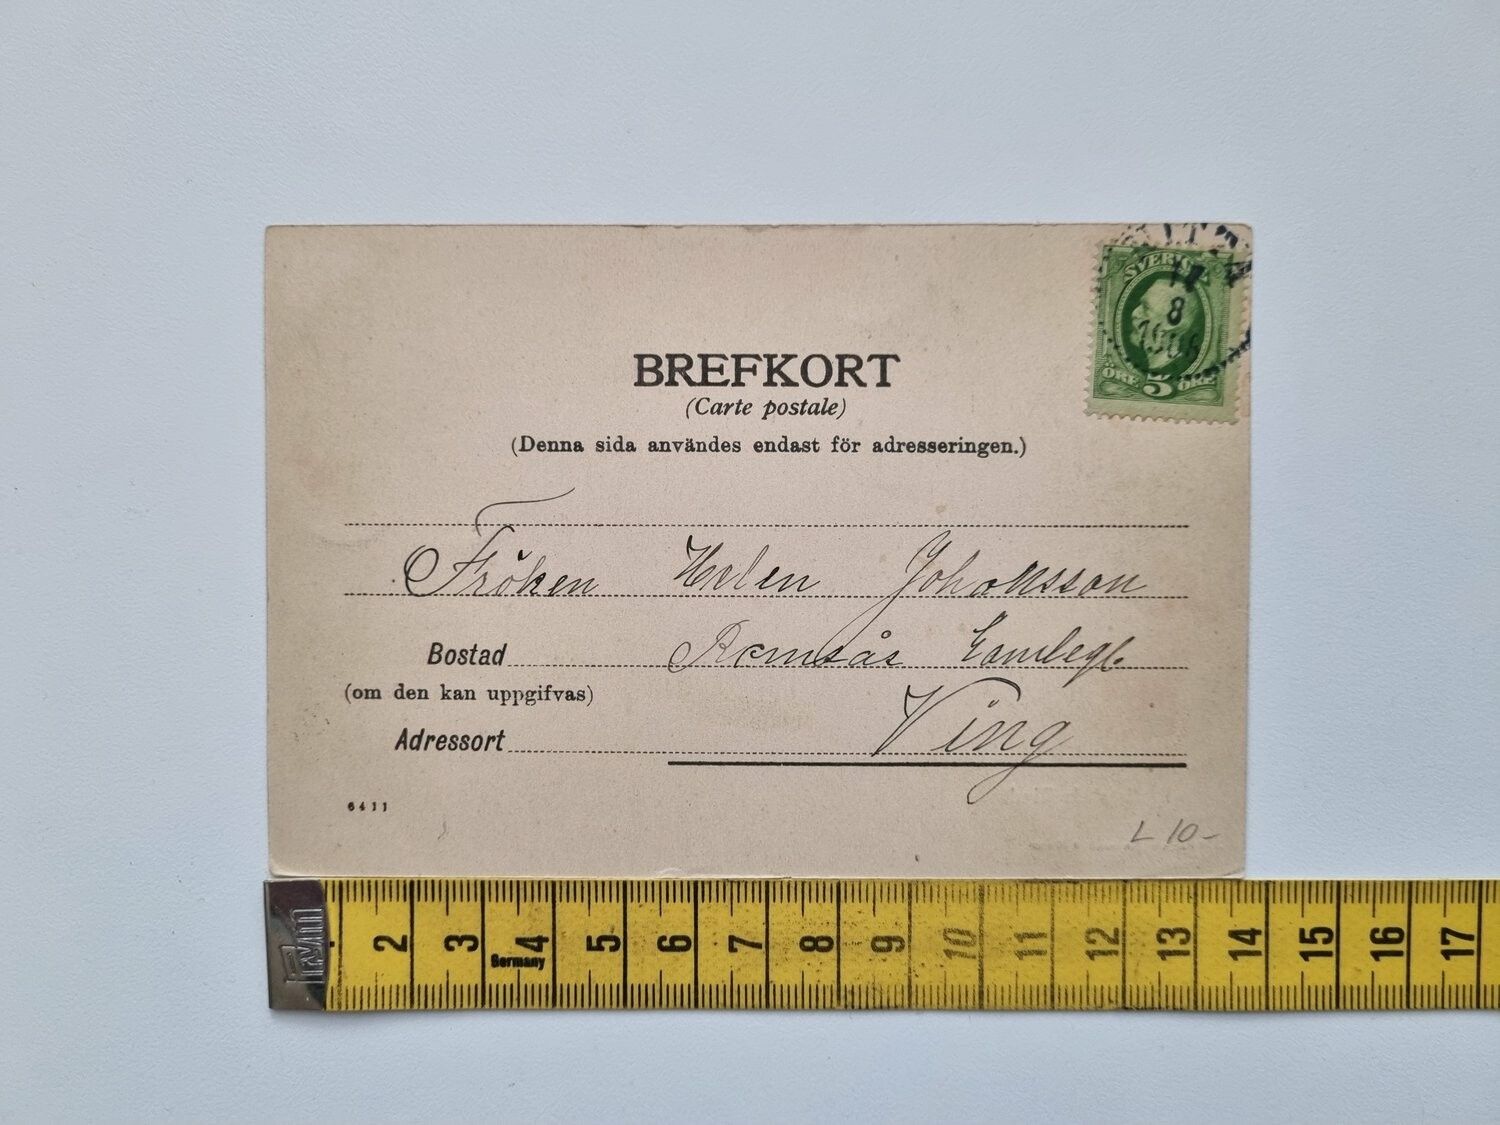 SVERIGE
17
8
ÖRE 5 ÖRE
BREFKORT
(Carte postale)
(Denna sida användes endast för adresseringen.)
Fröken Helen Johansson
Bostad Ramsås
(om den kan uppgifvas)
Adressort Ving
6411
L 10-
2 3 4 5 6 7 8 9 10 11 12 13 14 15 16 17
Germany